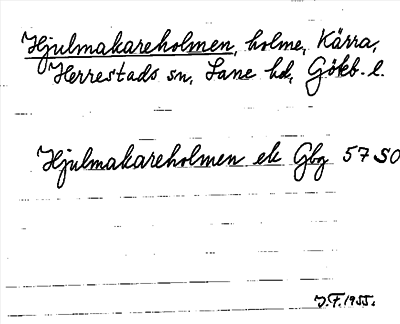 Hjulmakareholmen, holme, Kärra,
Herrestads sn, Lane hd, Gökb. l.
Hjulmakareholmen ek Gbg 57 SO
J.F. 1955.